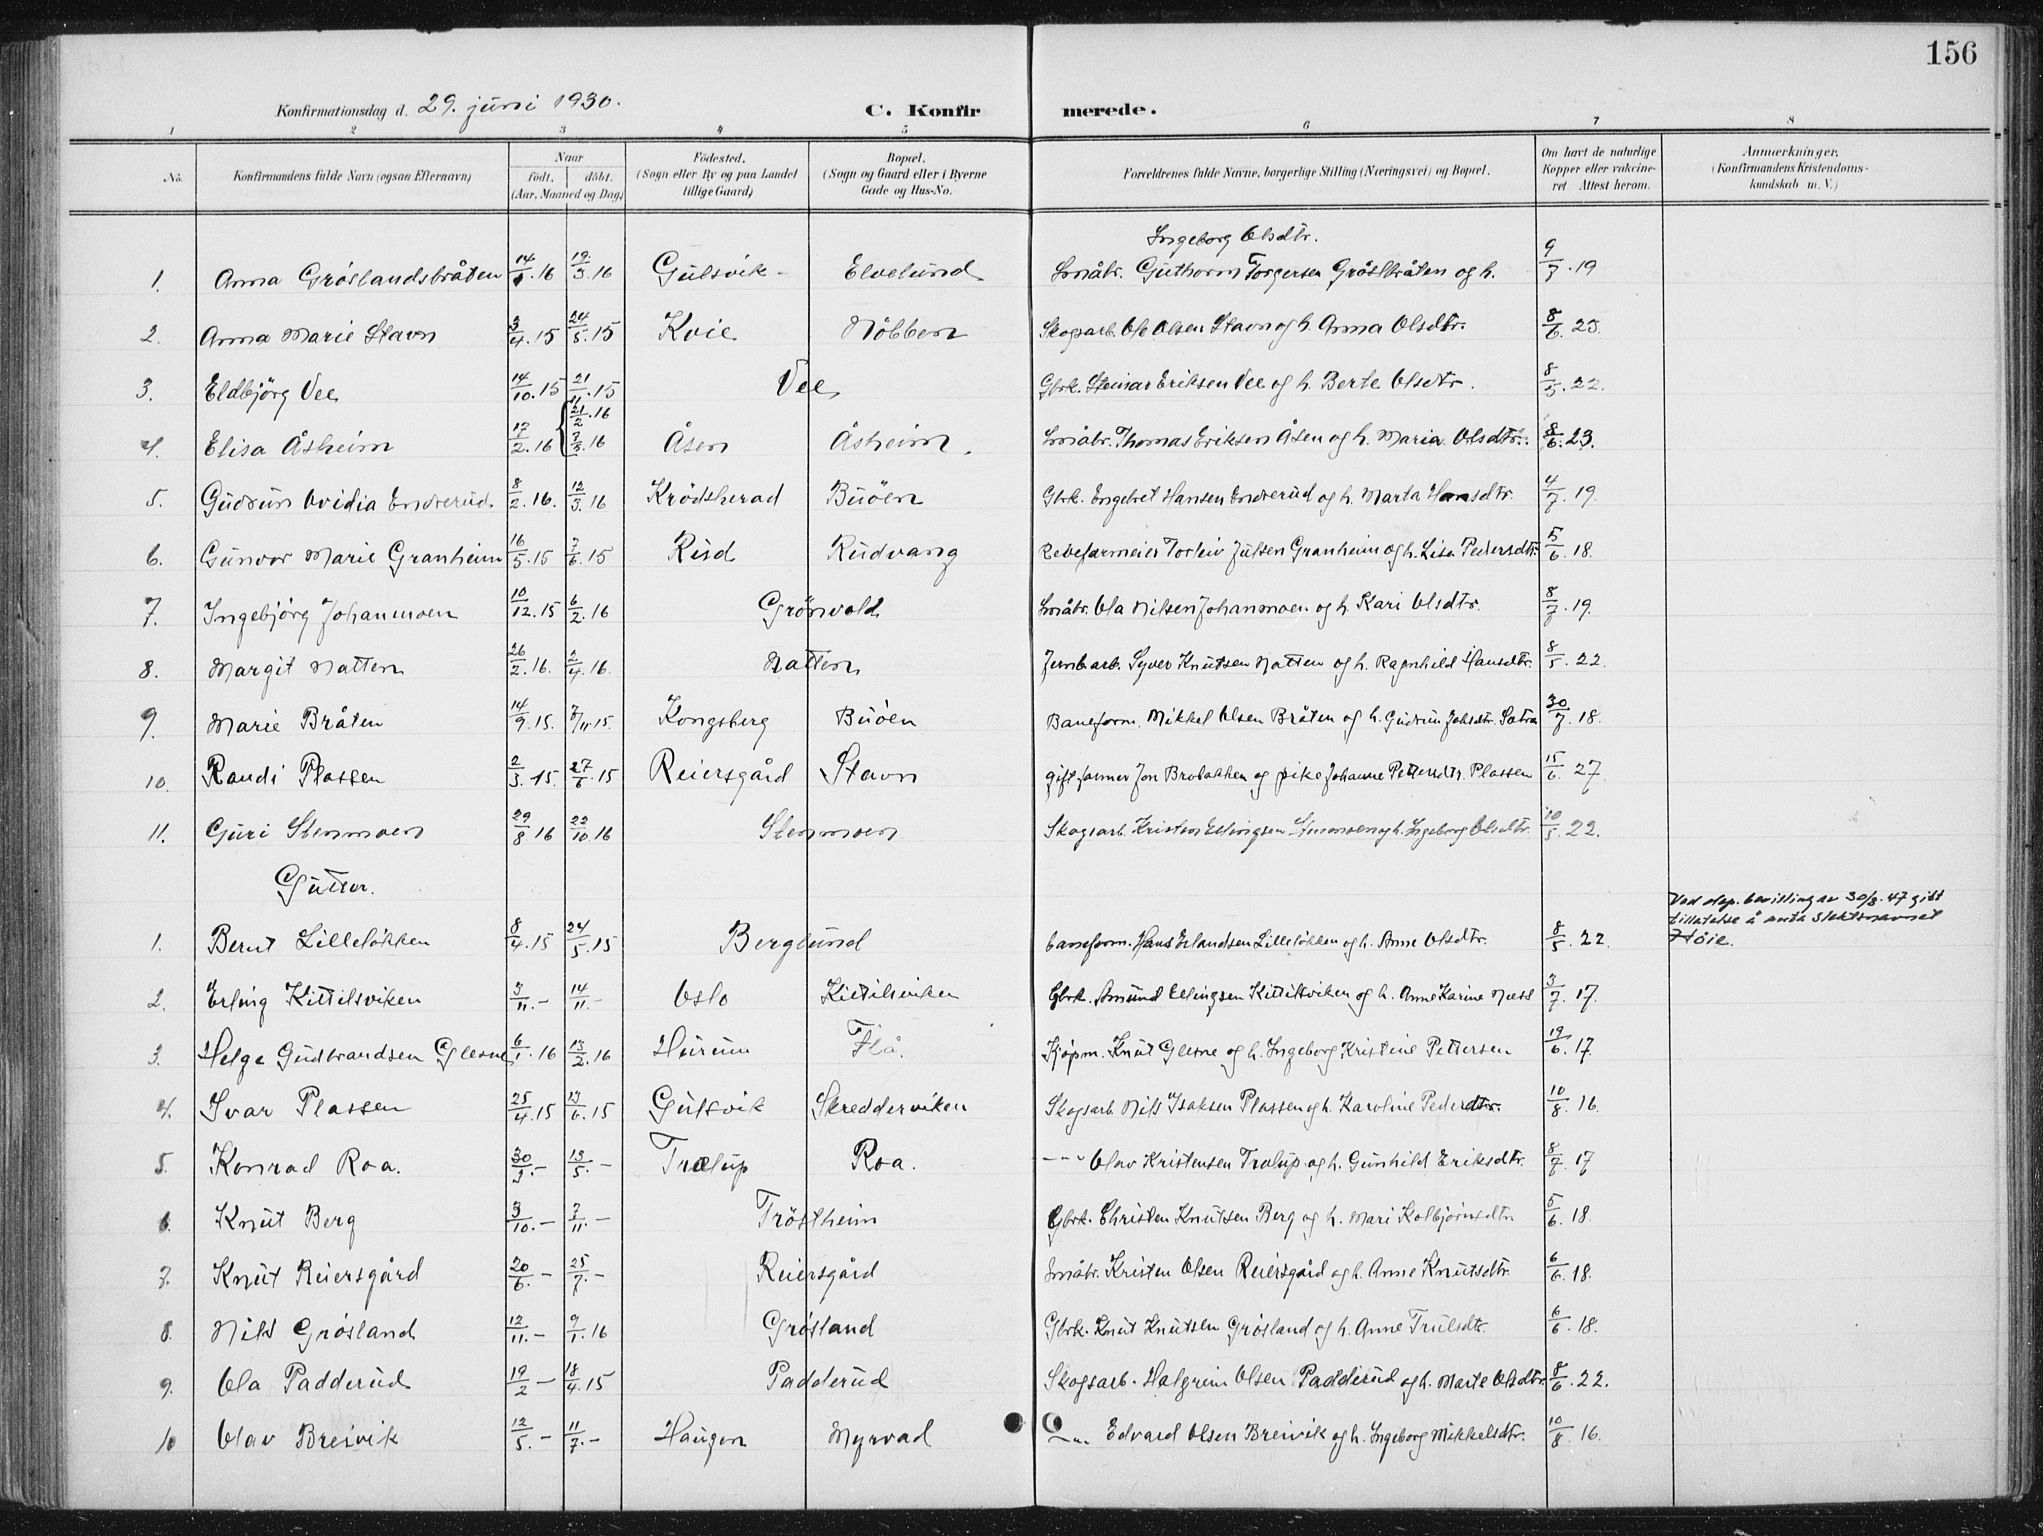 156
Konfirmationsdag d. 29. juni 1930.
C. Konfirmerede.
1 2 3 4 5 6 7 8
No.
Konfirmandens fulde Navn (ogsaa Efternavn)
Naar
födt. döbt.
(Aar, Maaned og Dag)
Födested.
(Sogn eller By og paa Landet
tillige Gaard)
Bopæl.
(Sogn og Gaard eller i Byerne
Gade og Hus-No.
Forældrenes fulde Navne, borgerlige Stilling (Næringsvei) og Bopæl.
Om havt de naturlige
Kopper eller vakcine-
ret. Attest herom.
Anmærkninger.
(Konfirmandens Kristendoms-
kundskab m. V.)
Ingeborg Olsdtr.
1. Anna Gröslandsbråten 14/1.16 12/3.16 Gulsvik - Elvelund Småbr. Guthorm Torgersen Gröslbråten og h. 9/7.19
2. Anna Marie Stavn 3/4.15 24/5.15 Kvie Nöbben Skogsarb. Ole Olsen Stavn og h. Anna Olsdtr. 8/6.23
3. Eldbjörg Vee 14/10.15 21/11.15 Vee Gbrk. Steinar Eriksen Vee og h. Berte Olsdtr. 8/5.22.
21/2.16
4. Elisa Åsheim 17/2.16 7/3.16 Åsen Åsheim. Småbr. Thomas Eriksen Åsen og h. Maria Olsdtr. 8/6.23.
5. Gudrun Ovidia Endrerud 8/2.16. 12/3.16 Krödsherad Buöen Gbrk. Engebret Hansen Endrerud og h. Marta Hansdtr. 4/7.19.
6. Gunvor Marie Granheim 16/5.15 7/6.15 Rud Rudvang Revefarmeier Torleiv Julsen Granheim og h. Lisa Pedersdtr. 5/6.18.
7. Ingebjörg Johanmoen 10/12.15 6/2.16 Grönvold Småbr. Ola Nilsen Johanmoen og h. Kari Olsdtr. 8/7.19.
8. Margit Natten 26/2.16. 2/4.16. Natten Jernb.arb. Syver Knutsen Natten og h. Ragnhild Hansdtr. 8/5.22.
9. Marie Bråten 14/9.15. 7/11.15. Kongsberg Buöen Baneform. Mikkel Olsen Bråten og h. Gudrun Johsdtr. Satra 30/7.18.
10. Randi Plassen 2/3.15. 27/6.15 Reiersgård Stavn gift farmer Jon Brobakken og pike Johanne Pettersdtr. Plassen 15/6.27
11. Guri Stenmoen 29/8.16 22/10.16 Stenmoen Skogsarb. Kristen Erlingsen Stenmoen og h. Ingeborg Olsdtr. 10/5.22.
Gutter.
Ved dep. bevilling av 30/8.47 gitt
tillatelse å anta slektsnavnet
1. Bernt Lillelökken 8/4.15 24/5.15 Berglund baneform. Hans Erlandsen Lillelökken og h. Anne Olsdtr. 8/5.22. Höie.
2. Erling Kittilsviken 3/11.- 14/11.- Oslo Kittilsviken Gbrk. Amund Ellingsen Kittilsviken og h. Anne Karine Næss 3/7.17.
3. Helge Gudbrandsen Glesne 6/1.16 13/2.16 Hurum Flå. Kjöpm. Knut Glesne og h. Ingeborg Kristine Pettersen 19/6.17.
4. Ivar Plassen 25/4.15 13/6.15 Gulsvik Skredderviken Skogsarb. Nils Isaksen Plassen og h. Karoline Pedersdtr. 10/8.16.
5. Konrad Roa. 30/3.- 13/5.- Trælup Roa. -"- Olav Kristensen Trolup og h. Gunhild Eriksdtr. 8/7.17
6. Knut Berg 3/10.- 7/11.- Tröstheim Gbrk. Christen Knutsen Berg og h. Mari Kolbjörnsdtr. 5/6.18.
7. Knut Reiersgård 20/6.- 25/7.- Reiersgård Småbr. Kristen Olsen Reiersgård og h. Anne Knutsdtr. 6/6.18.
8. Nils Grösland 12/11.- 9/1.16 Grösland Gbrk. Knut Knutsen Grösland og h. Anne Trulsdtr. 6/6.18.
9. Ola Padderud 19/2 - 18/4.15 Padderud Skogsarb. Halgrim Olsen Padderud og h. Marte Olsdtr. 8/6.22.
10 Olav Breivik 12/5.- 11/7.- Haugen Myrvad -"- Edvard Olsen Breivik og h. Ingeborg Mikkelsdtr. 10/8.16.